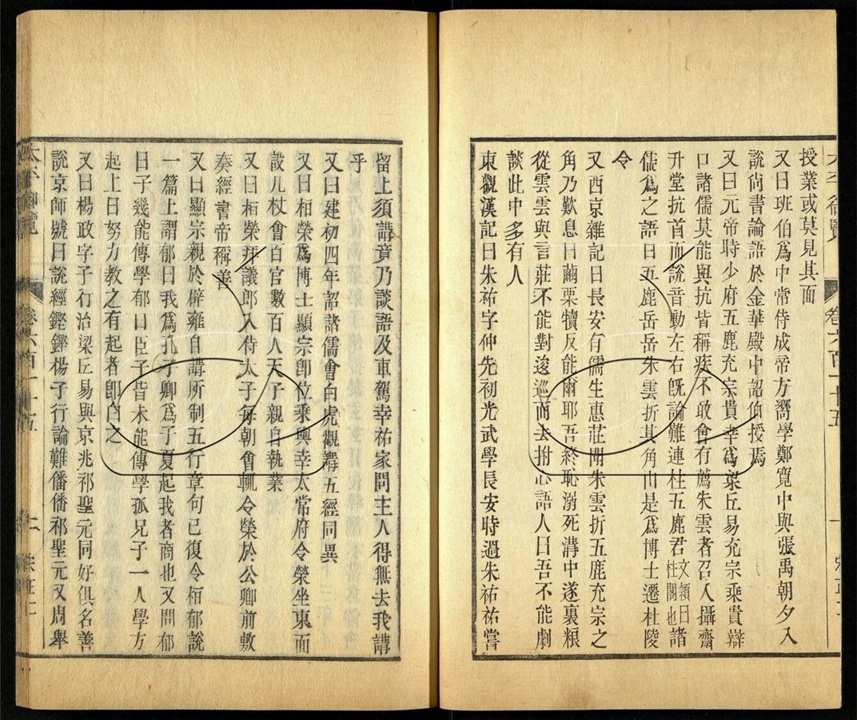 授業或莫見其面
又曰班伯爲中常侍成帝方嚮學鄭寬中與張禹朝夕入
說尚書論語於金華殿中詔伯授焉
又曰元帝時少府五鹿充宗貴幸爲梁丘易充宗乘貴辯
口諸儒莫能與抗皆稱疾不敢會有薦朱雲者召入攝齋
升堂抗首而說音動左右旣論難連柱五鹿君文穎曰柱闚也諸
儒爲之語曰五鹿岳岳朱雲折其角由是爲博士遷杜陵
令
又西京雜記曰長安有儒生惠莊聞朱雲折五鹿充宗之
角乃歎息曰繭栗犢反能爾耶吾終恥溺死溝中遂裹粮
從雲雲與言莊不能對逡巡而去拊心語人曰吾不能劇
談此中多有人
東觀漢記曰朱祐字仲先初光武學長安時過朱祐祐嘗
太平御覽 卷六百一十五
留上須講竟乃談語及車駕幸祐家問主人得無去我講
乎
又曰建初四年詔諸儒會白虎觀講五經同異
又曰桓榮爲博士顯宗卽位乘輿幸太常府令榮坐東面
設几杖會百官數百人天子親自執業
又曰桓榮拜議郎入侍太子每朝會輒令榮於公卿前敷
奏經書帝稱善
又曰顯宗親於辟雍自講所制五行章句已復令桓郁說
一篇上謂郁曰我爲孔子卿爲子夏起我者商也又問郁
曰子幾能傳學郁曰臣子皆未能傳學孤兄子一人學方
起上曰努力教之有起者卽白之
又曰楊政字子行治梁丘易與京兆祁聖元同好俱名善
說京師號曰說經鏗鏗楊子行論難僠僠祁聖元又周舉
太平御覽 卷六百一十五